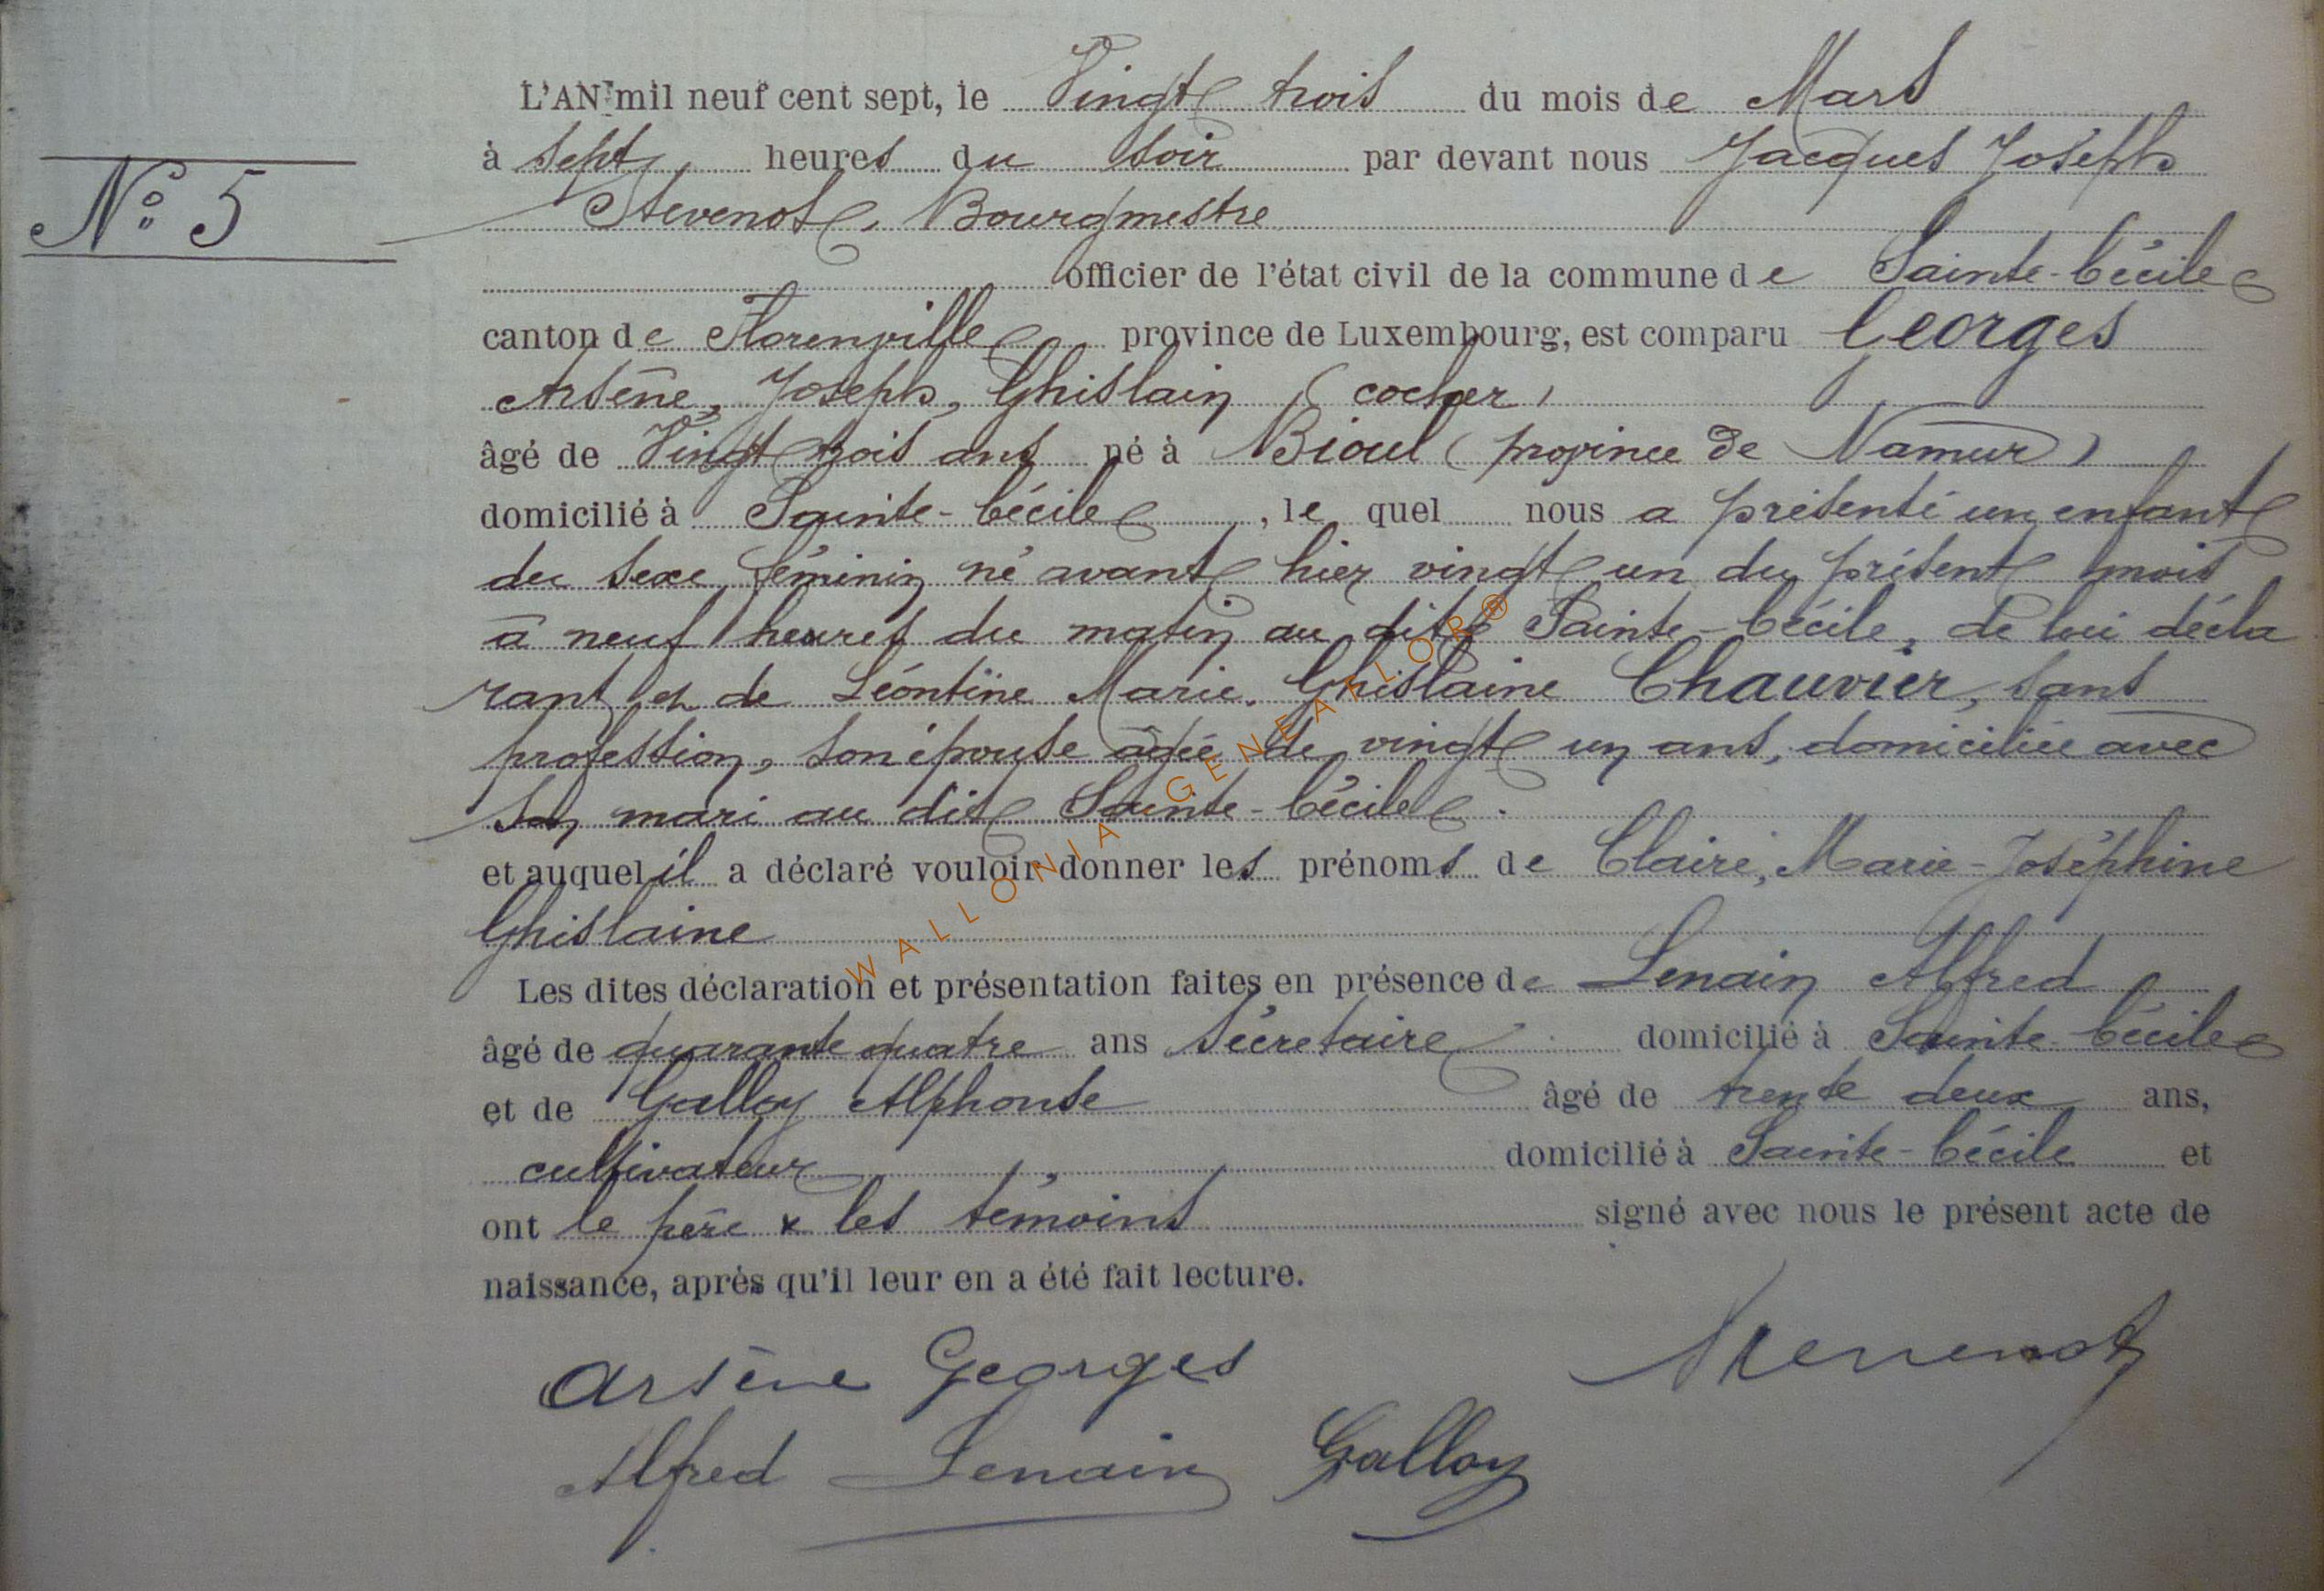 L'AN mil neuf cent sept, le Vingt trois du mois de Mars
à sept heures du soir par devant nous Jacques Joseph
N° 5
Stevenot, Bourgmestre
officier de l'état civil de la commune de Sainte-Cécile
canton de Florenville province de Luxembourg, est comparu Georges
Arsène, Joseph, Ghislain (cocher)
âgé de Vingt trois ans né à Bioul (province de Namur)
domicilié à Sainte-Cécile, le quel nous a présenté un enfant
du sexe féminin né avant hier vingt un du présent mois
à neuf heures du matin au dit Sainte-Cécile, de lui décla
rant et de Léontine Marie Ghislaine Chauvier, sans
profession, son épouse âgée de vingt un ans, domiciliée avec
son mari au dit Sainte-Cécile.
et auquel il a déclaré vouloir donner les prénoms de Claire, Marie-Joséphine
Ghislaine
Les dites déclaration et présentation faites en présence de Lenain Alfred
âgé de quarante quatre ans Sécretaire domicilié à Sainte Cécile
et de Galloy Alphonse âgé de trente deux ans,
cultivateur, domicilié à Sainte-Cécile et
ont le père & les témoins signé avec nous le présent acte de
naissance, après qu'il leur en a été fait lecture.
Arsène Georges Stevenot
Alfred Lenain Galloy
WALLONIA GENEALOR®